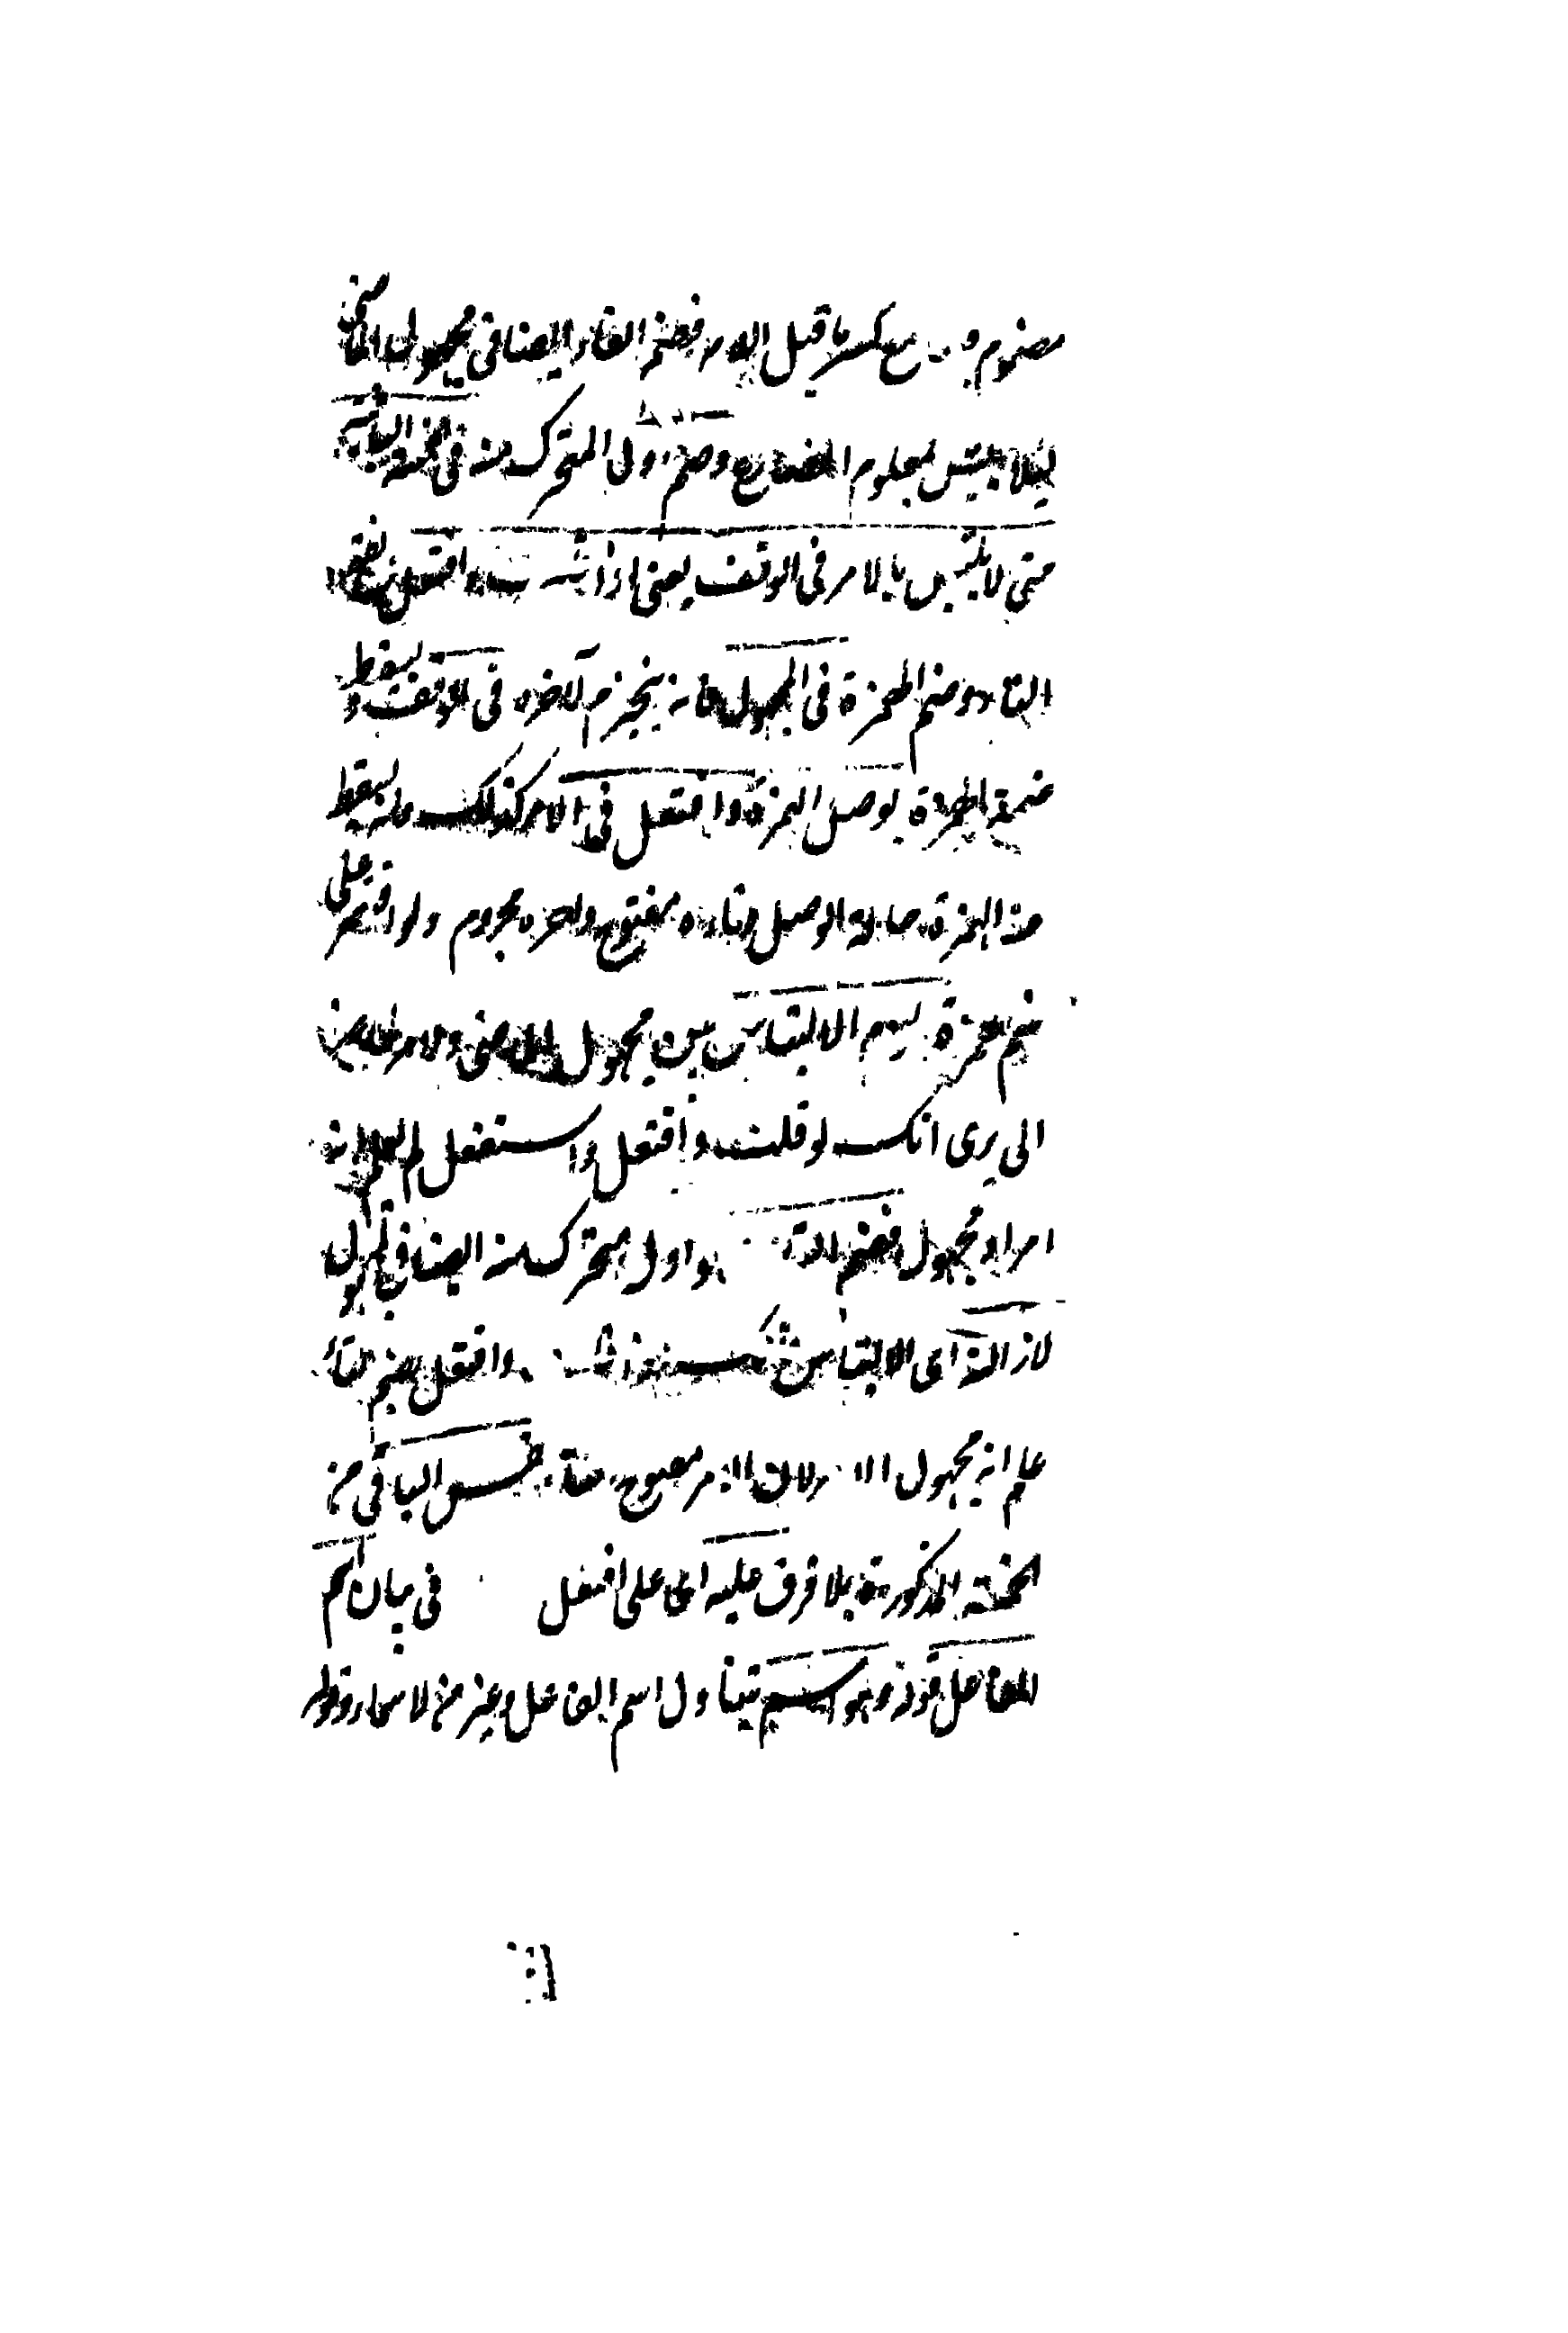 مضموم مع كسر ما قبل الاخر فضم الفاء ايضا في مجهول الماضي
لئلا يلتبس بمعلوم المضارع وضم اول المتحرك منه في الخمسة الباقية
حتى لا يلتبس بالامر في الوقف يعنى اذا قلت وافتعل بفتح
التاء وضم الهمزة في المجهول فانه ينجزم آخره في الوقف ويسقط
ضمة الهمزة بوصل الهمزة وافتعل في الامر كذلك فانه يسقط
منه الهمزة حالة الوصل وتاءه مفتوح واخره مجزوم ولو اقتصر على
ضم همزة ليوم الالتباس بين مجهول الماضي والامر الحاضر
الى يرى انك لو قلت وافتعل واستفعل لم يعلم انه
امر او مجهول فضم التاء واول متحرك منه ايضا في المجهول
لازالته اى الالتباس وافتعل بضم التاء
علم انه مجهول لان الامر مفتوح التاء فقس الباقي من
الخمسة المذكورة بلا فرق عليه اى على افتعل في بيان اسم
الفاعل قوله وهو اسم يتناول اسم الفاعل وغيره من الاسماء وقوله